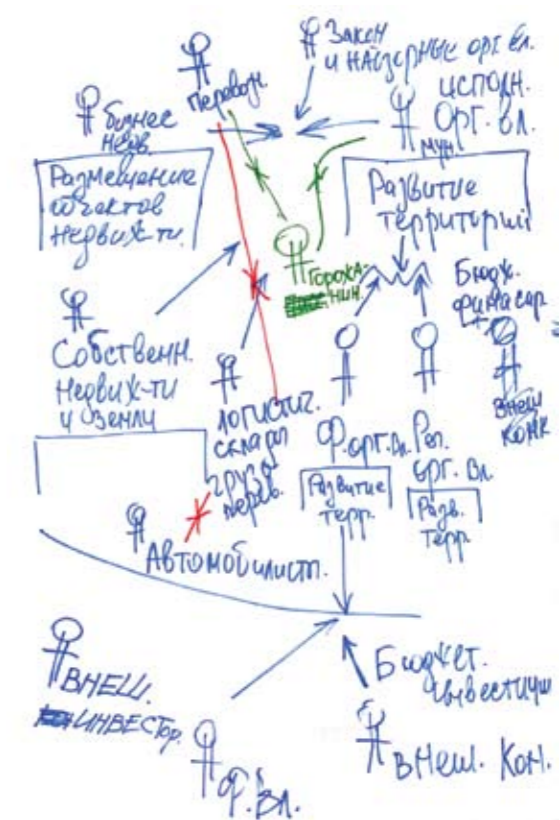 Закон
и надзорные орг вл.
Перевозч.
бизнес
недв.
исполн.
Орг. вл.
мун.
Размещение
объектов
недвиж-ти.
Развитие
территорий
Горожа-
нин.
Бюдж.
Собственн.
недвиж-ти
и земли
логистич.
склады
грузо
перев.
Ф.орг.вл.
Рег.
орг. вл.
Внеш
конк
Развитие
терр.
Разв.
терр.
Автомобилисты.
Внеш.
инвестор.
Бюджет.
инвестиции
внеш. кон.
Ф. вл.